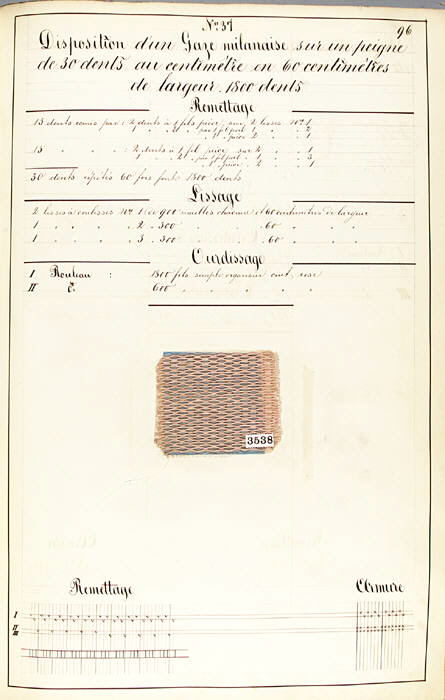 No. 37
96
Disposition d'un Gaze milanaise sur un peigne
de 30 dents au centimètre en 60 centimètres
de largeur. 1800 dents
Remettage
15 dents remis par : 2 dents à 1 fils pièce, sur 2 lisses No. 1
15 " " " : 2 dents à 1 fil pièce sur 2 " " 1
30 dents répétés 60 fois font 1800 dents
Lissage
2 lisses à coulisses No. 1 de 900 mailles chacune et 60 centimètres de largeur
1 " " " " 2 " 300 " " 60 " "
1 " " " " 3 " 300 " " 60 " "
Ourdissage
I Rouleau : 1800 fils simple organsin cuit, rose
II " 600 " " " " "
3538
Remettage
Armure
I
II
III